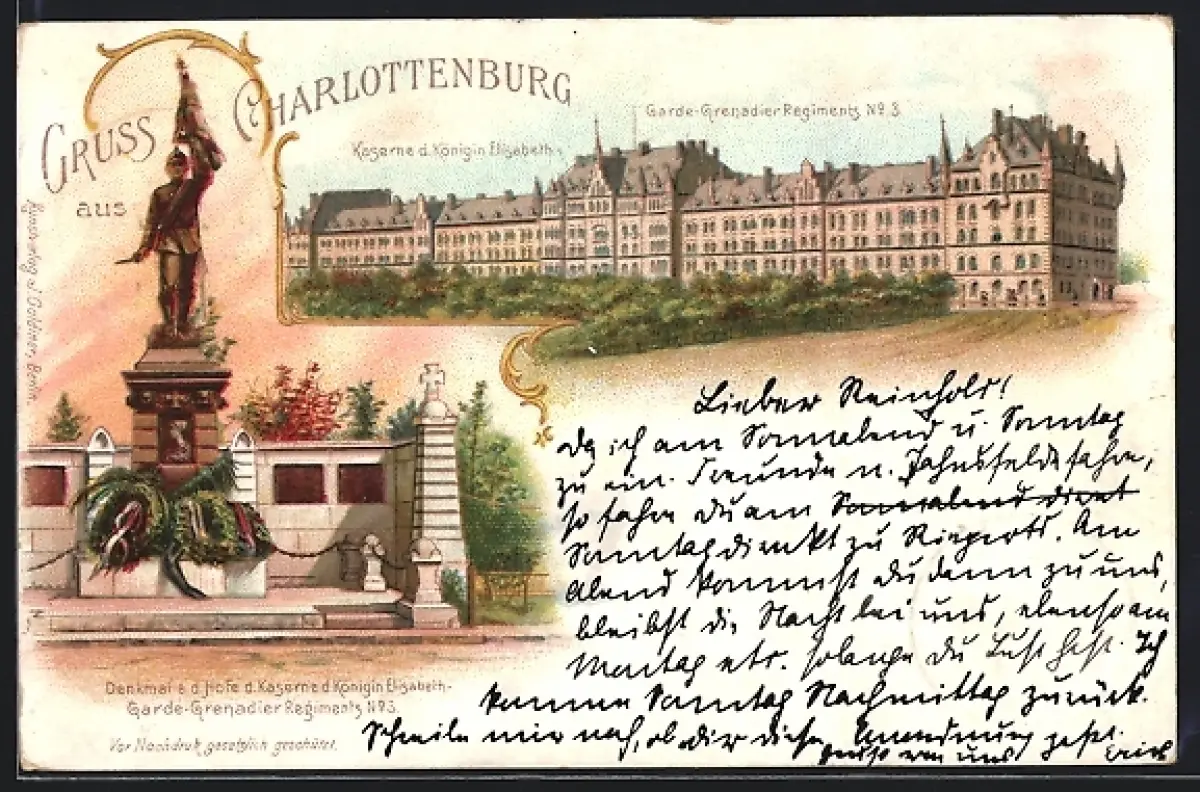 GRUSS
aus
CHARLOTTENBURG
Kaserne d. Königin Elisabeth-
Garde-Grenadier Regiments No. 3.
Kunstverlag J. Goldiner, Berlin.
Lieber Reinhold!
Da ich am Sonnabend u. Sonntag
zu ein. Freunde n. Jahnsfelde fahre,
so fahre du am Sonnabend direkt
Sonntag direkt zu Ringerts. Am
Abend kommst du dann zu uns,
bleibst die Nacht bei uns, ebenso am
Montag etc. solange du Lust hast. Ich
komme Sonntag Nachmittag zurück.
Schreibe mir noch, ob dir diese Anordnung paßt.
Gruß von uns Erich
Denkmal a. d. Hofe d. Kaserne d. Königin Elisabeth-
Garde-Grenadier Regiments No. 3.
Vor Nachdruck gesetzlich geschützt.